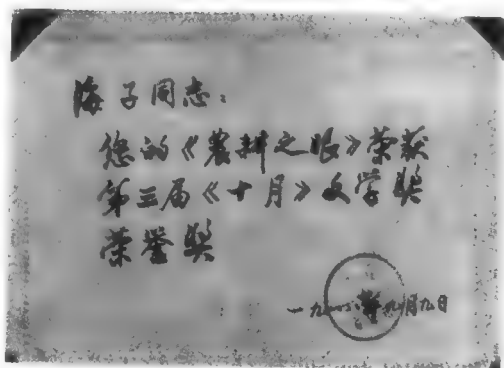 海子同志：
您的《農耕之眼》荣获
第三届《十月》文学奖
荣誉奖
一九八 年九月九日